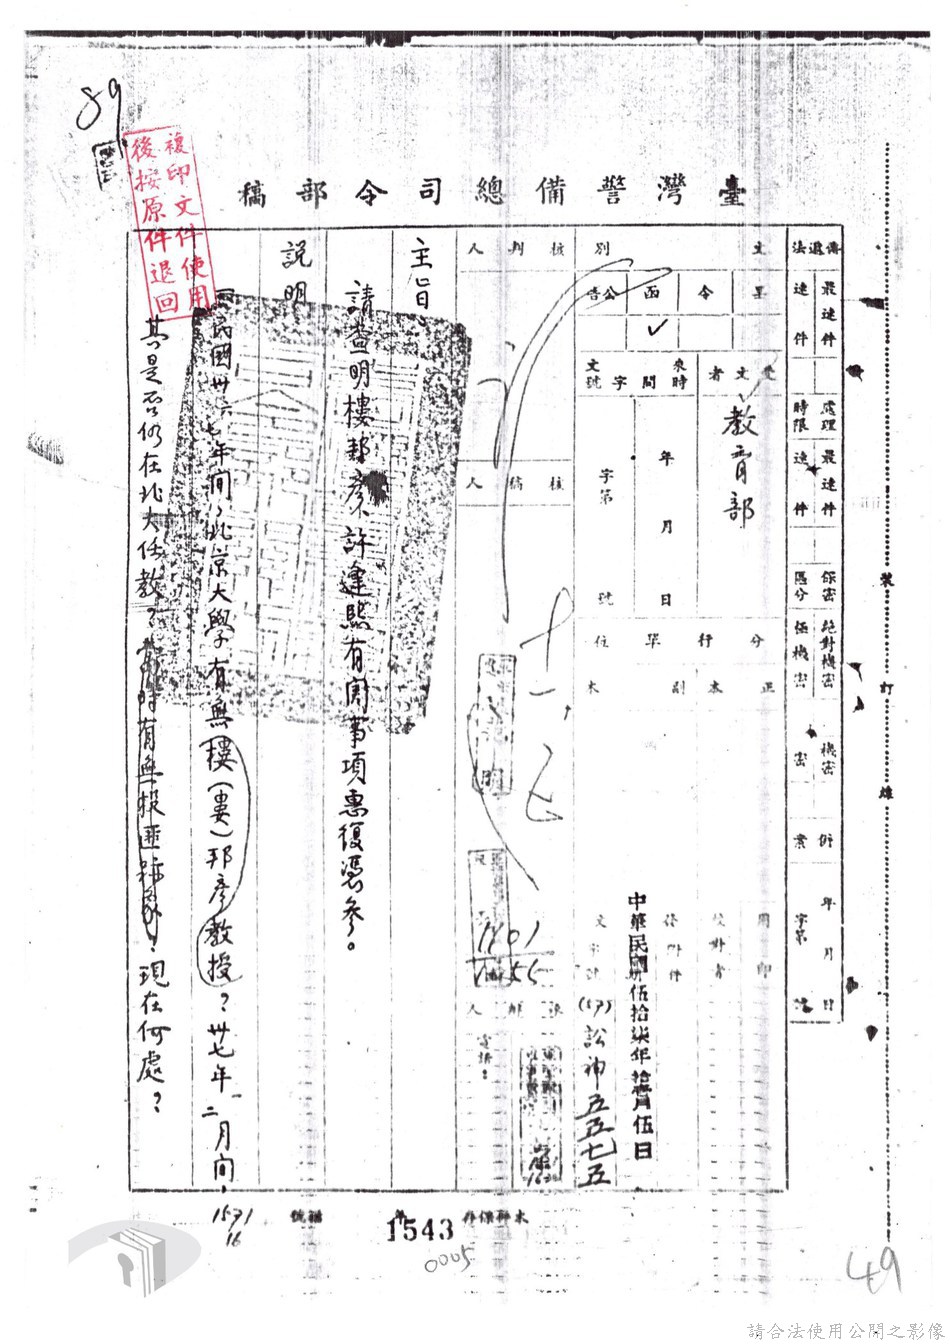 89
複印文件使用
後按原件退回
臺灣警備總司令部稿
傳遞法
最速件
速件
處理時限
最速件
速件
保密區分
絕對機密
極機密
機密
密
年月日
字第
號
文別
呈
令
函
公告
✓
受文者
教育部
來文時間字號
年月日
字第
號
分行單位
正本
副本
用印
校對者
中華民國伍拾柒年拾壹月伍日
(57)訟神五五七五
核判人
核稿人
十一、
1101
1655
承辦人
電話:
主旨
請查明樓邦彥、許逢熙有關事項惠復憑參。
説明
民國卅六、七年間,北京大學有無樓(婁)邦彥教授?卅七年一、二月間,
其是否仍在北大任教?當時有無投匪跡象?現在何處?
裝
訂
線
1571
16
1543
0005
49
請合法使用公開之影像